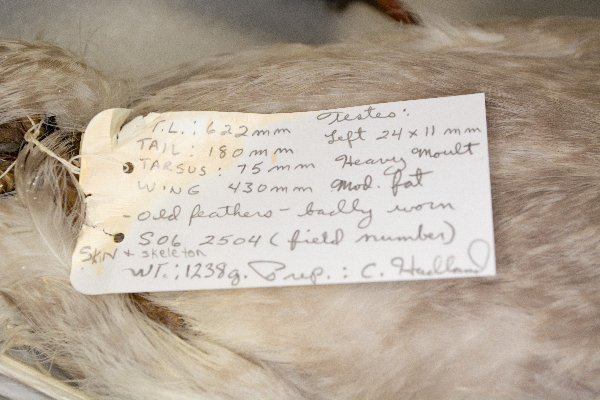 T.L.: 622mm Testes:
TAIL: 180mm Left 24 x 11 mm
TARSUS: 75mm Heavy Moult
WING 430mm Mod. fat
- old feathers - badly worn
SO6 2504 (field number)
SKIN + skeleton
WT.: 1238g. Prep.: C. Hadland